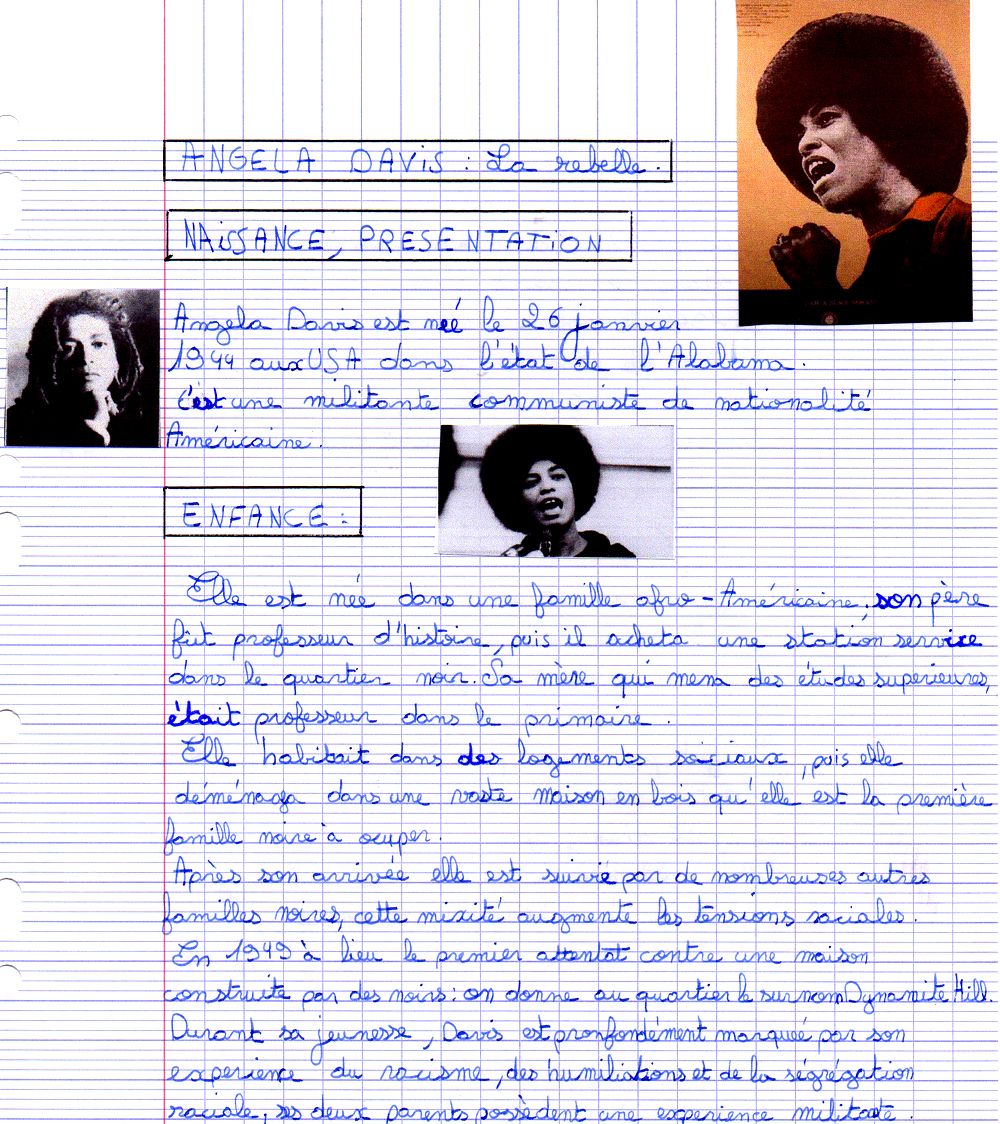 ANGELA DAVIS : La rebelle.
NAISSANCE, PRESENTATION
Angela Davis est neé le 26 janvier
1944 aux USA dans l'état de l'Alabama.
C'est une militante communiste de nationalité
Américaine.
ENFANCE :
Elle est née dans une famille afro-Américaine, son père
fût professeur d'histoire, puis il acheta une station service
dans le quartier noir. Sa mère qui mena des études superieures,
était professeur dans le primaire.
Elle habitait dans des logements sociaux, puis elle
déménaga dans une vaste maison en bois qu'elle est la première
famille noire à ocuper.
Après son arrivée elle est suivie par de nombreuses autres
familles noires, cette mixité augmente les tensions raciales.
En 1949 à lieu le premier attentat contre une maison
construite par des noirs : on donne au quartier le surnom Dynamite Hill.
Durant sa jeunesse, Davis est pronfondément marquée par son
experience du racisme, des humiliations et de la ségrégation
raciale, ses deux parents possèdent une experience militante.